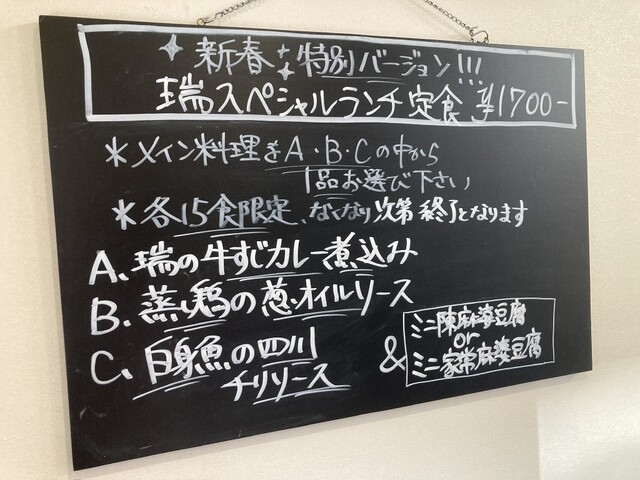 新春 特別バージョン!!!
瑞スペシャルランチ定食 ¥1700-
*メイン料理をA・B・Cの中から
1品お選び下さい
*各15食限定、なくなり次第終了となります
A、瑞の牛すじカレー煮込み
B、蒸し鶏の葱オイルソース
C、白身魚の四川
チリソース
& ミニ陳麻婆豆腐
or
ミニ家常麻婆豆腐